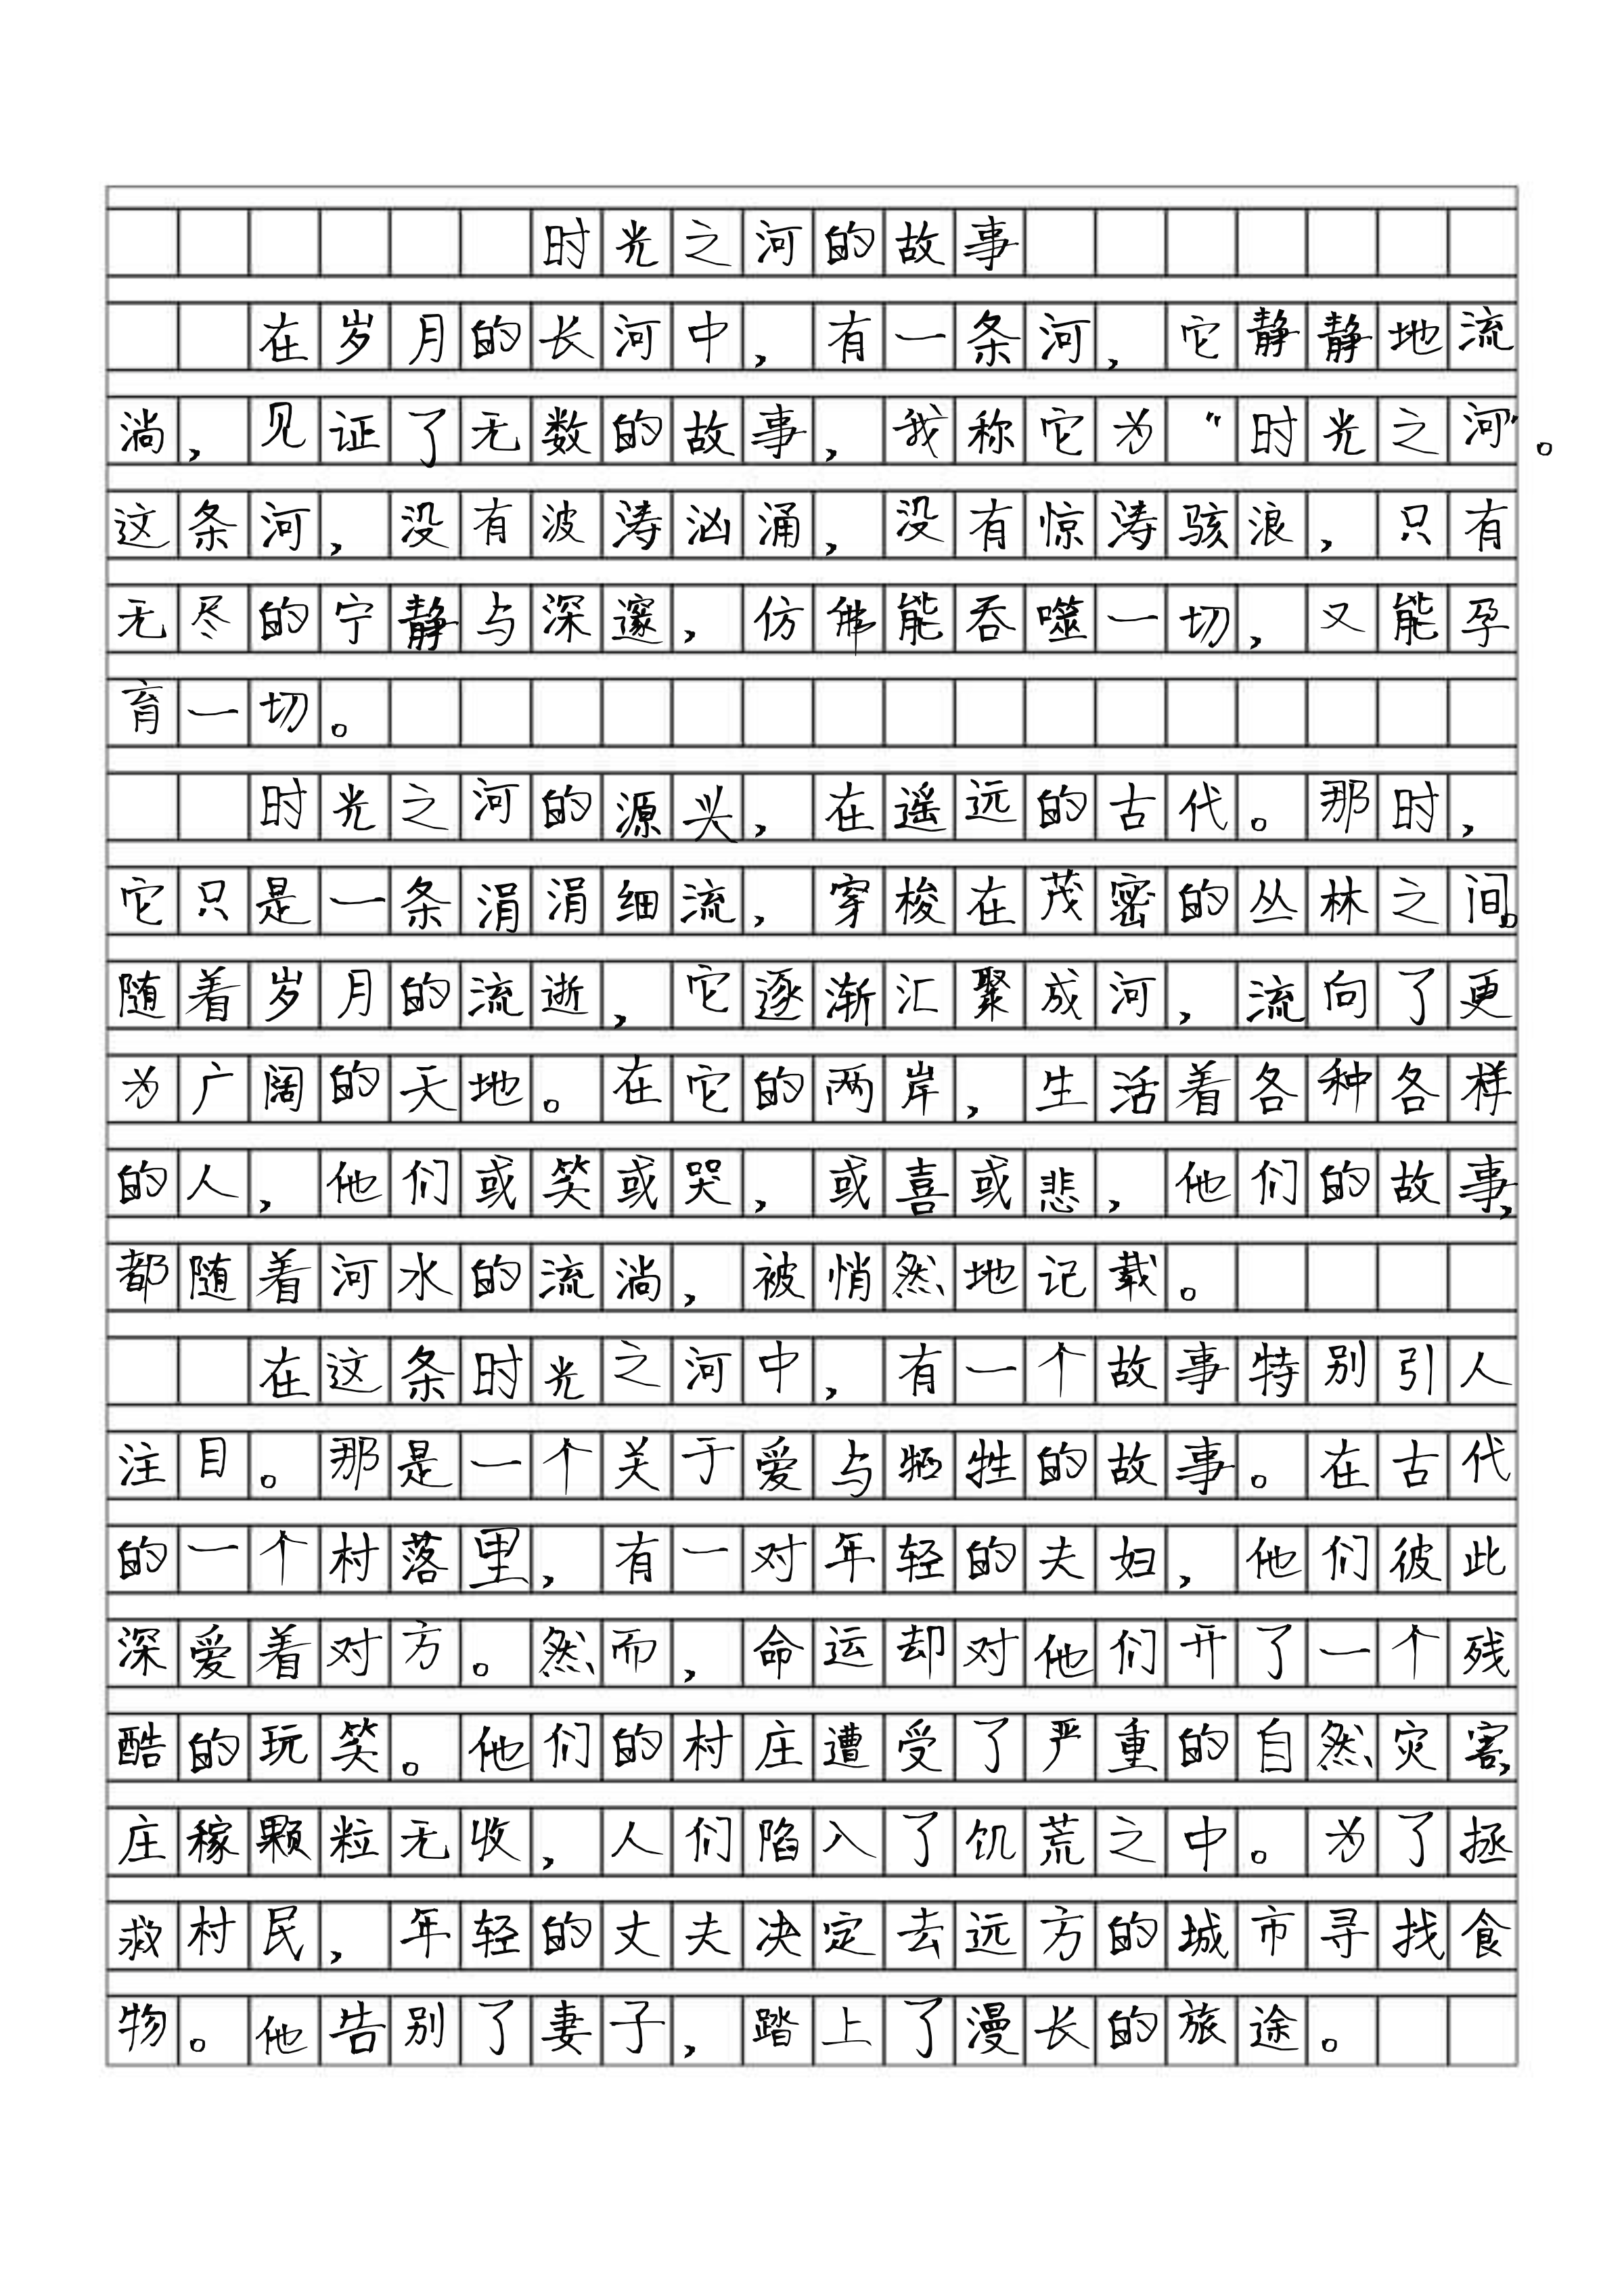 时光之河的故事
在岁月的长河中，有一条河，它静静地流
淌，见证了无数的故事，我称它为“时光之河”。
这条河，没有波涛汹涌，没有惊涛骇浪，只有
无尽的宁静与深邃，仿佛能吞噬一切，又能孕
育一切。
时光之河的源头，在遥远的古代。那时，
它只是一条涓涓细流，穿梭在茂密的丛林之间。
随着岁月的流逝，它逐渐汇聚成河，流向了更
为广阔的天地。在它的两岸，生活着各种各样
的人，他们或笑或哭，或喜或悲，他们的故事，
都随着河水的流淌，被悄然地记载。
在这条时光之河中，有一个故事特别引人
注目。那是一个关于爱与牺牲的故事。在古代
的一个村落里，有一对年轻的夫妇，他们彼此
深爱着对方。然而，命运却对他们开了一个残
酷的玩笑。他们的村庄遭受了严重的自然灾害，
庄稼颗粒无收，人们陷入了饥荒之中。为了拯
救村民，年轻的丈夫决定去远方的城市寻找食
物。他告别了妻子，踏上了漫长的旅途。